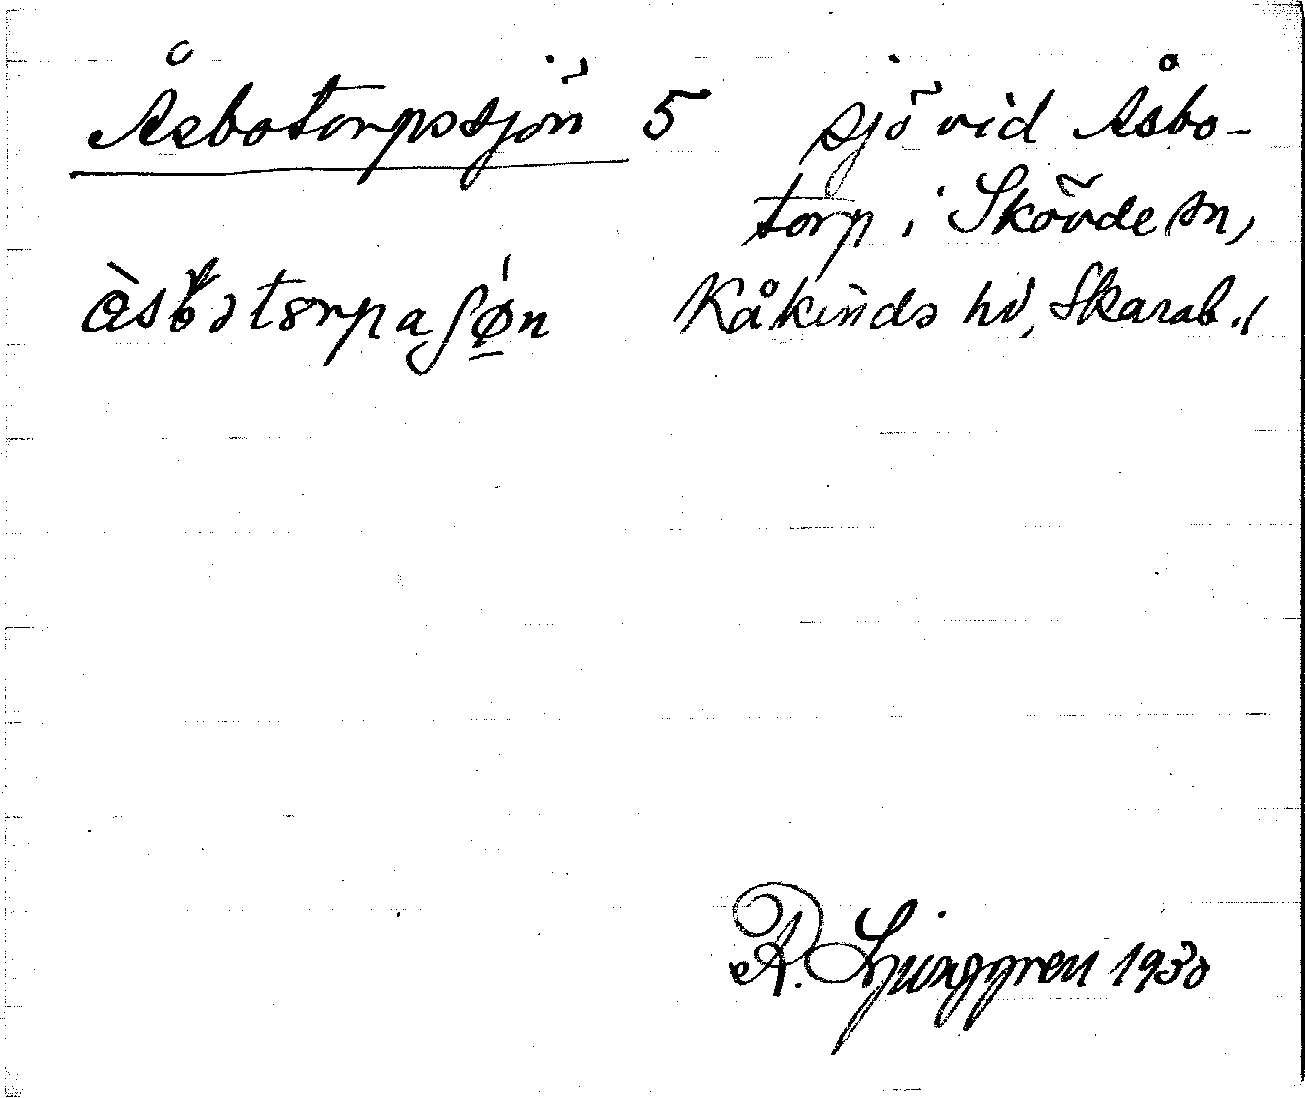 Åsbotorpssjön 5 sjö vid Åsbo-
torp i Skövde sn,
Kåkinds hd, Skarab. l
R. Ljunggren 1930